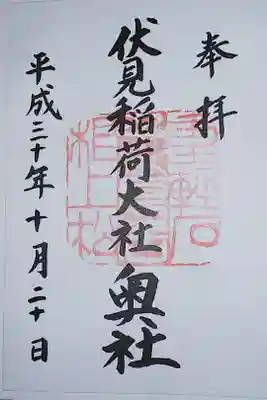 奉拝
伏見稲荷大社奥社
平成三十年十月二十日